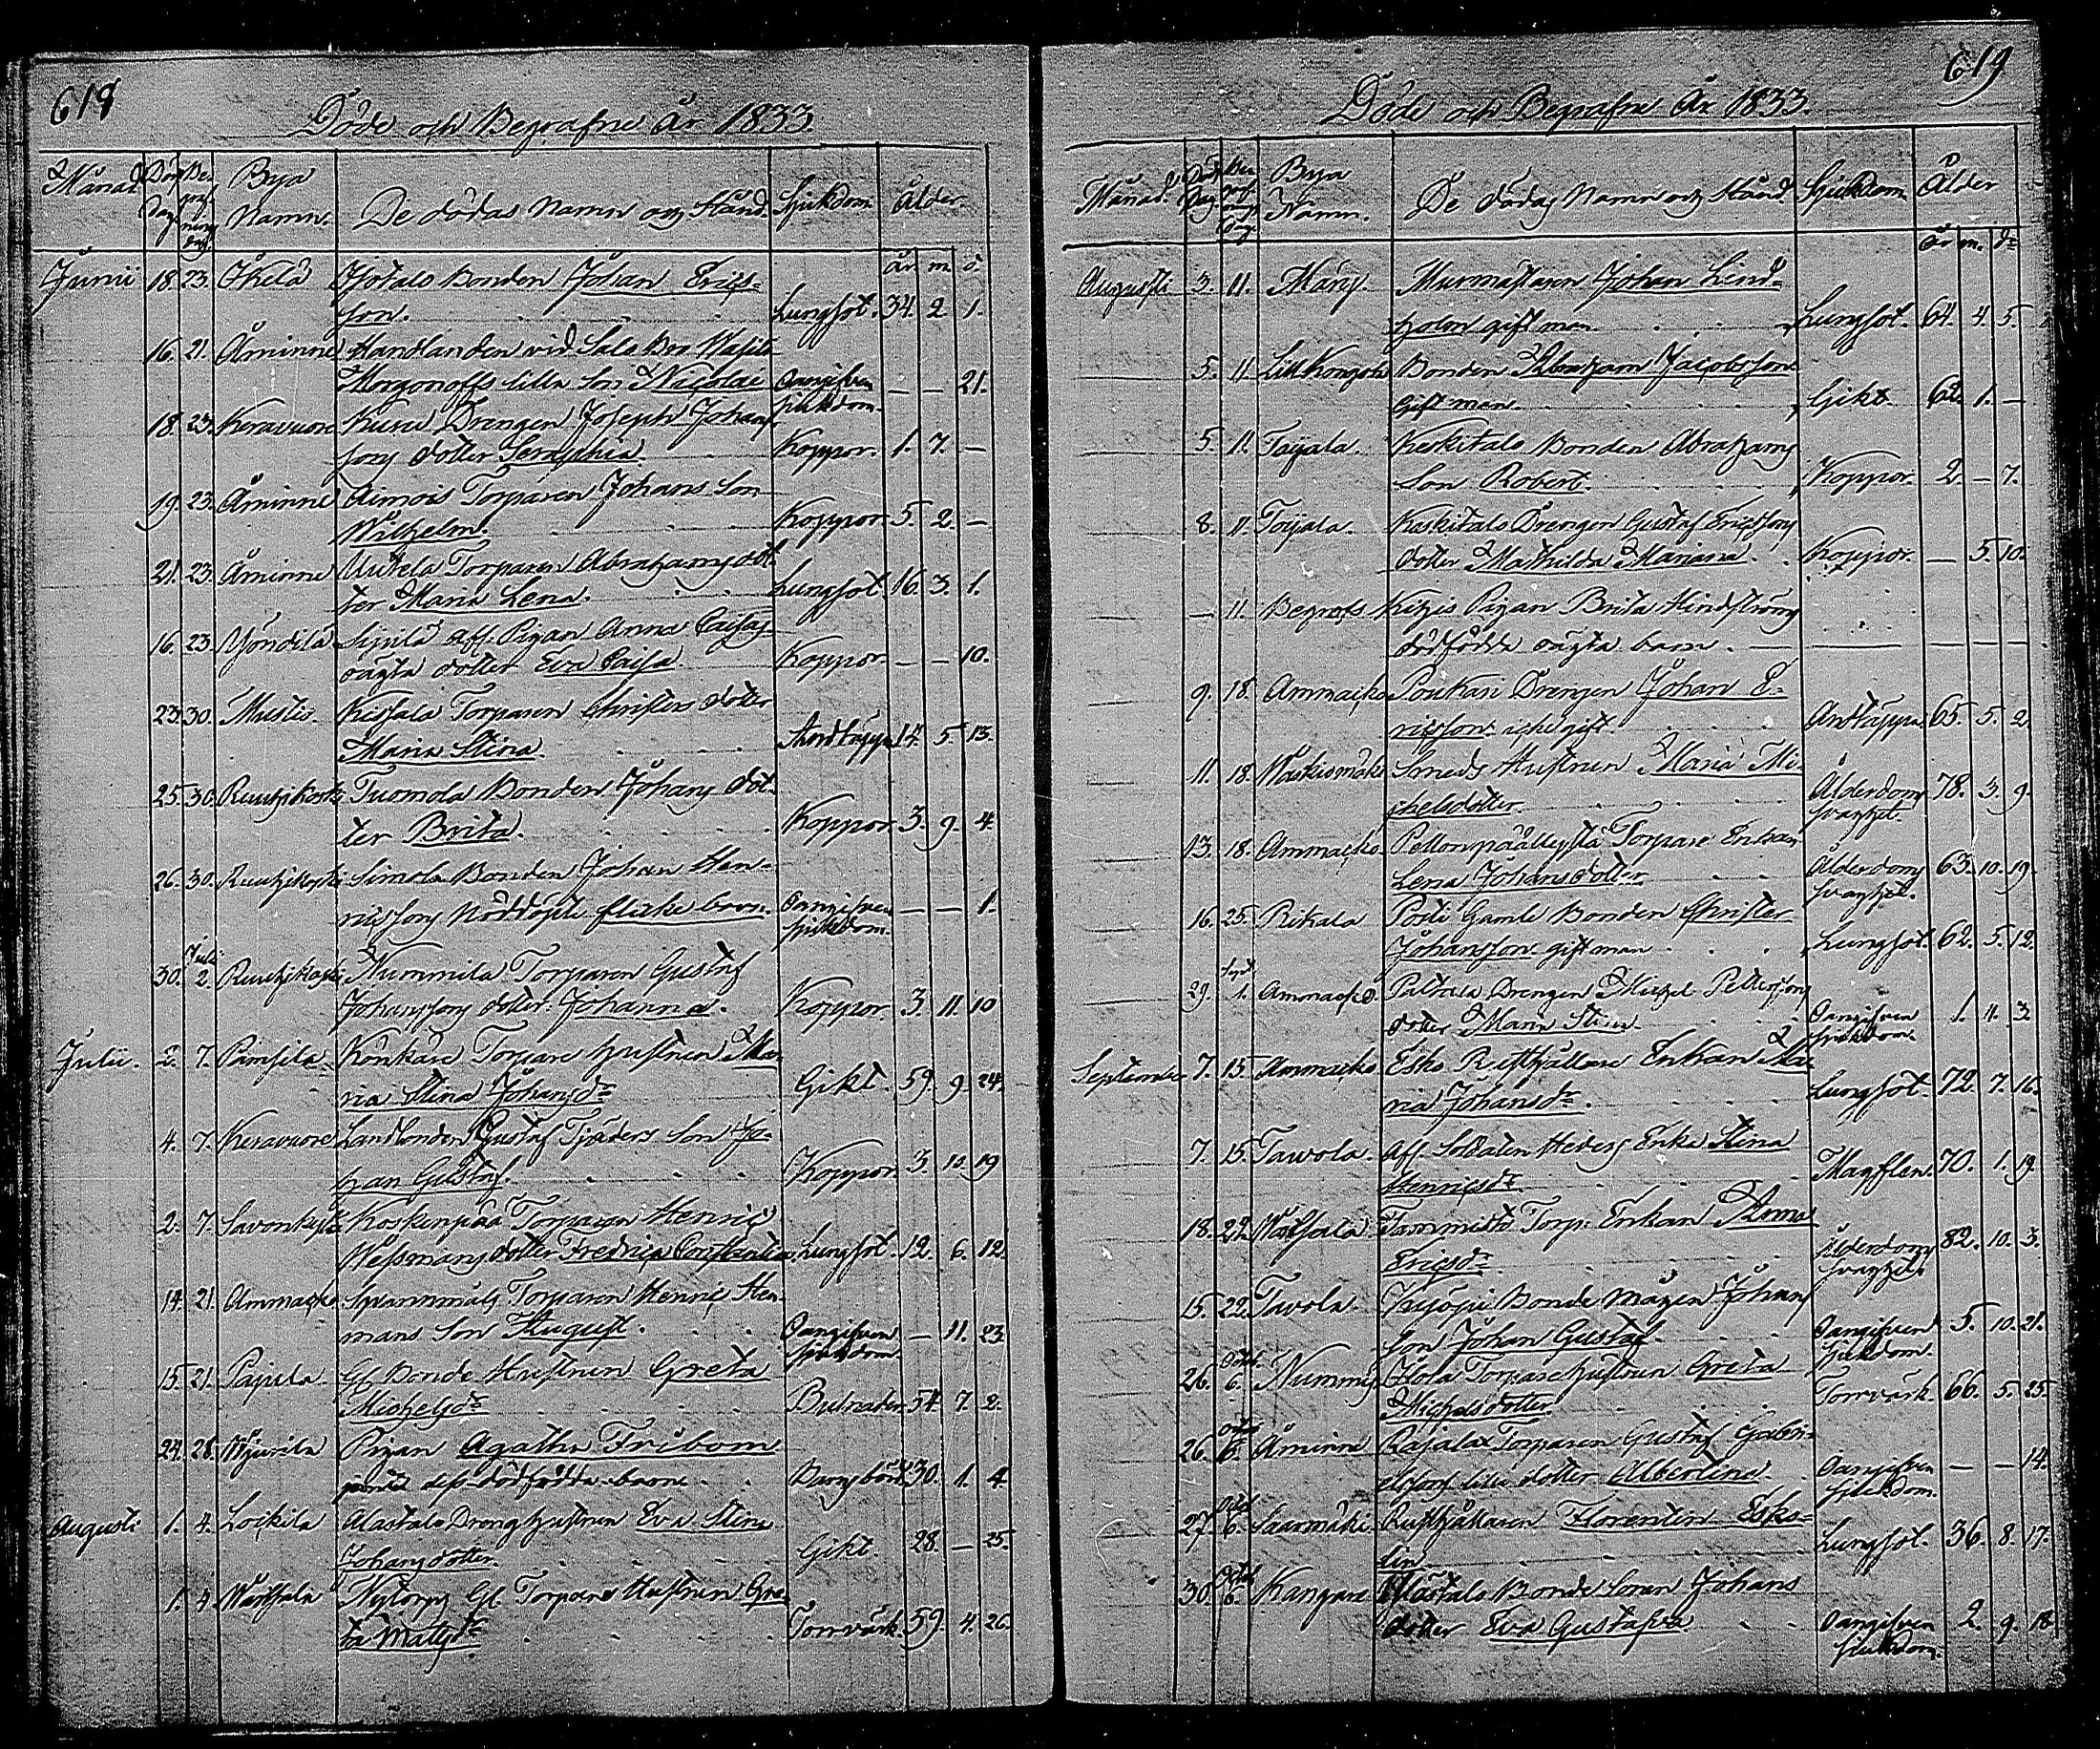 618
Döde och Begrafne År 1833.
Månad Död Dag Be graf ning dag Bya Namn. De dödas Namn och Stånd. Sjukdom Ålder.
år. m. d.
Junii 18. 23. Isotalo Bonden Johan Erics-
son. Lungsot. 34. 2. 1.
16. 21. Åminne Handlanden vid Salo Bro
Morgonoffs lilla son Nicolai Oangifven — — 21.
sjukdom.
18. 23. Keravuore Drengen Joseph Johans-
sons dotter Seraphia. Koppor. 1. 7. —
19. 23. Åminne Torparen Johans Son
Wilhelm. Koppor 5. 2. —
21. 23. Åminne Uutela Torparen Abrahams dot-
ter Maria Lena. Lungsot. 16. 3. 1.
16. 23. Pigan Anna Caisas
oägta dotter Eva Caisa Koppor. — — 10.
23. 30. Torparen Christers dotter
Maria Stina 14. 5. 13.
25. 30. Ruutsikoski Tuomola Bonden Johans dot-
ter Brita. Koppor. 3. 9. 4.
26. 30. Ruutsikoski Simola Bonden Johan Hen-
ricssons Nöddöpte flicke barn. Oangifven — — 1.
sjukdom.
Julii
30. 2. Ruutsikoski Nummila Torparen Gustaf
Johanssons dotter Johanna. Koppor. 3. 11. 10
Julii. 2. 7. Torpare hustrun Ma-
ria Stina Johansdr Gikt. 59. 9. 24.
4. 7. Keravuore Landbonden Gustaf Tjäders Son Jo-
han Gustaf. Koppor 3. 10. 19
2. 7. Koskenpää Torparen Henric
dotter Fredrica Lungsot. 12. 6. 12.
14. 21. Ammaçko Torparen Henric Her-
mans Son August. Oangifven — 11. 23
sjukdom.
15. 21. Pajula Gl Bonde Hustrun Greta
Michelsdr 54 7. 2.
24. 28. Wjurila Pigan Agatha Fribom
jemte dess dödfödda barn. Barnsbörd 30. 1. 4
Augusti 1. 4. Alastalo Drengs hustrun Eva Stina
Johans dotter. Gikt. 28. — 25.
1. 4. Nytorps Gl. Torpare Hustrun Gre-
ta Matsdr Torrvärk. 59. 4. 26.
619
Döde och Begrafne År 1833.
Månad. Död Dag Be graf nings Dag. Byа Namn. De dödas Namn och Stånd. Sjukdom Ålder
år m. dr
Augusti 3. 11. Murmästaren Johan Lind-
holm gift man Lungsot. 64. 4. 5.
5. 11. Bonden Abraham Jacobsson
Gift man. Gikt 62. 1. —
5. 11. Tojjala. Keskitalo Bonden Abrahams
Son Robert. Koppor. 2. — 7.
8. 11. Tojjala. Keskitalo Drengen Gustaf Ericssons
dotter Mathilda Mariana. Koppor. — 5. 10.
— 11. Begrofs Pigan Brita Hindströms
dödfödda oägta barn. — — — —
9. 18. Ammaçko Drengen Johan E-
ricsson icke gift. Andtäppa 65. 5. 2.
11. 18. Smeds Hustrun Maria Mi-
chelsdotter. Ålderdoms 78. 3. 9.
svaghet.
13. 18. Ammaçko Torpare Enkan
Lena Johansdotter Ålderdoms 63. 10. 19.
svaghet.
16. 25. Rikala Gamle Bonden Christer
Johansson gift man Lungsot. 62. 5. 12.
Sept.
29. 1. Ammaçko. Drengen Michel Pettersons
dotter Maria Stina. Oangifven 1. 11. 3.
sjukdom.
September 7. 15. Ammaçko Esko Rusthållare Enkan Ma-
ria Johansdr. Lungsot. 72. 7. 16.
7. 15. Tavola. Afs. Soldaten Enka Stina
Henricsdr 70. 1. 19.
18. 22. Tammisto Torp. Enkan Anna
Ericsdr Ålderdoms 82. 10. 3.
svaghet.
15. 22. Tavola. Bonde Mågen Johans
Son Johan Gustaf. Oangifven 5. 10. 21.
sjukdom.
Octob.
26. 6. Torpare hustrun Greta
Michelsdotter Torrvärk. 66. 5. 25.
Octob
26. 6. Åminne Rajala Torparen Gustaf Gabri-
elssons lilla dotter Albertina. Oangifven — — 14.
sjukdom.
Octob
27. 6. Saarmäki Rusthållaren Florentin Esko-
lin. Lungsot. 36. 8. 17.
Octob
30. 6. Kangare Bonde Sonen Johans
dotter Eva Gustafva Oangifven 2. 9. 18.
sjukdom.